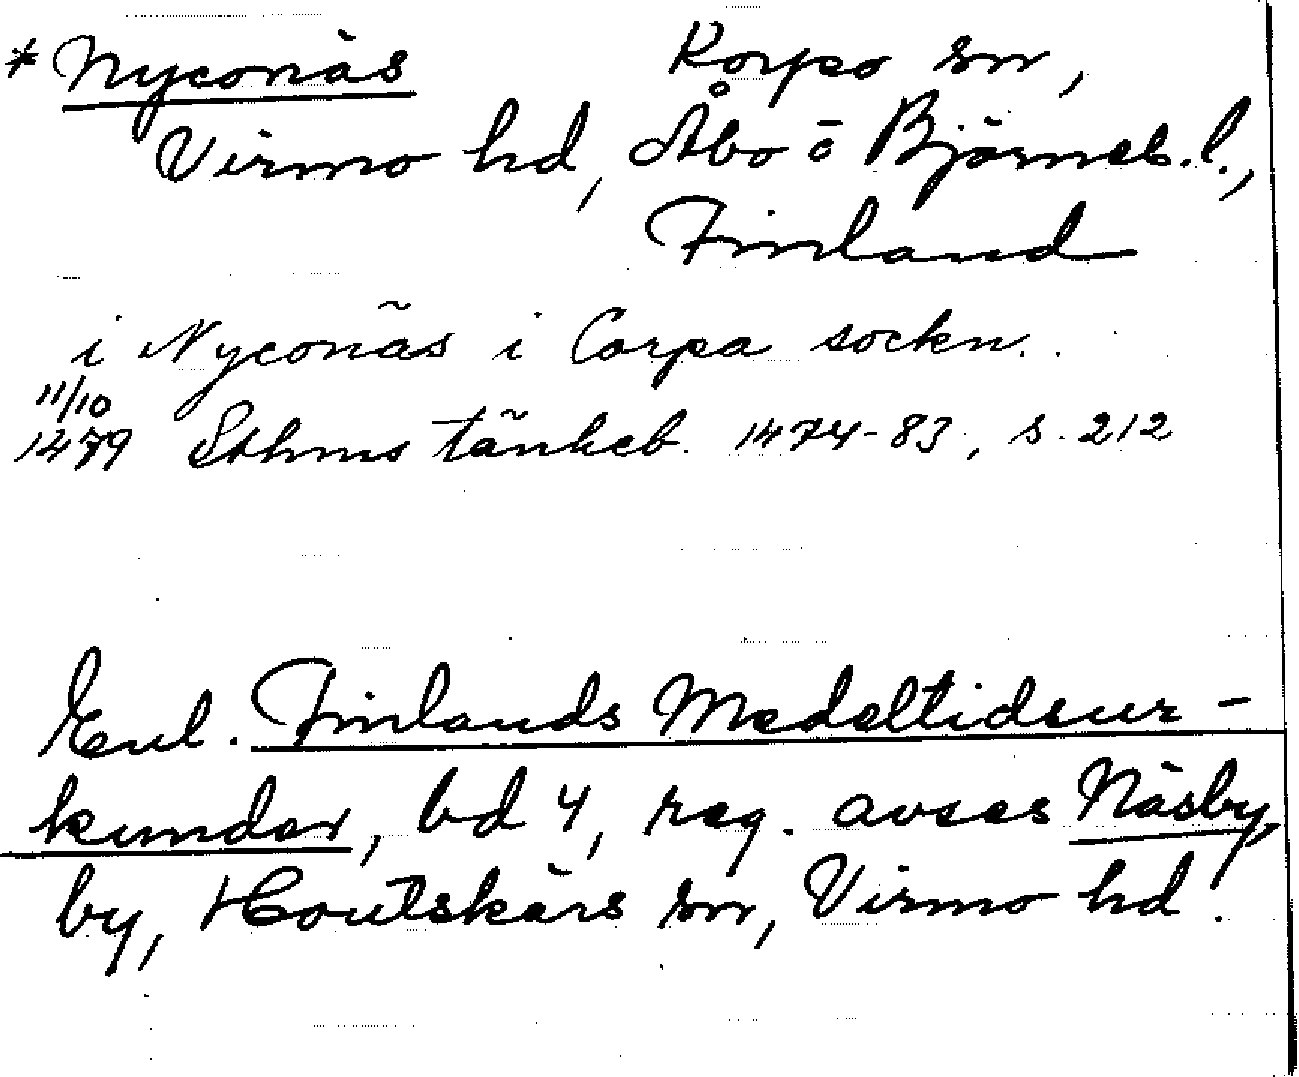 * Nyconäs Korpo sn,
Virmo hd, Åbo o Björneb. l.,
Finland
i Nyconäs i Corpa sockn.
11/10
1479 Sthms tänkeb. 1474-83, s. 212
Enl. Finlands Medeltidsur-
kunder, bd 4, reg. avses Näsby,
by, Houtskärs sn, Virmo hd.